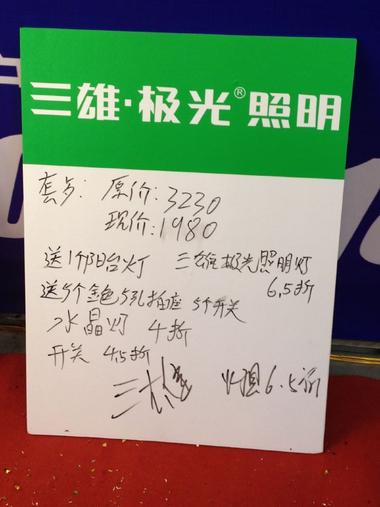 三雄·极光® 照明
套餐: 原价:3230
现价:1980
送1个阳台灯 三雄极光照明灯
6.5折
送5个金色5孔插座 5个开关
水晶灯 4折
开关 4.5折
三雄 6.5折